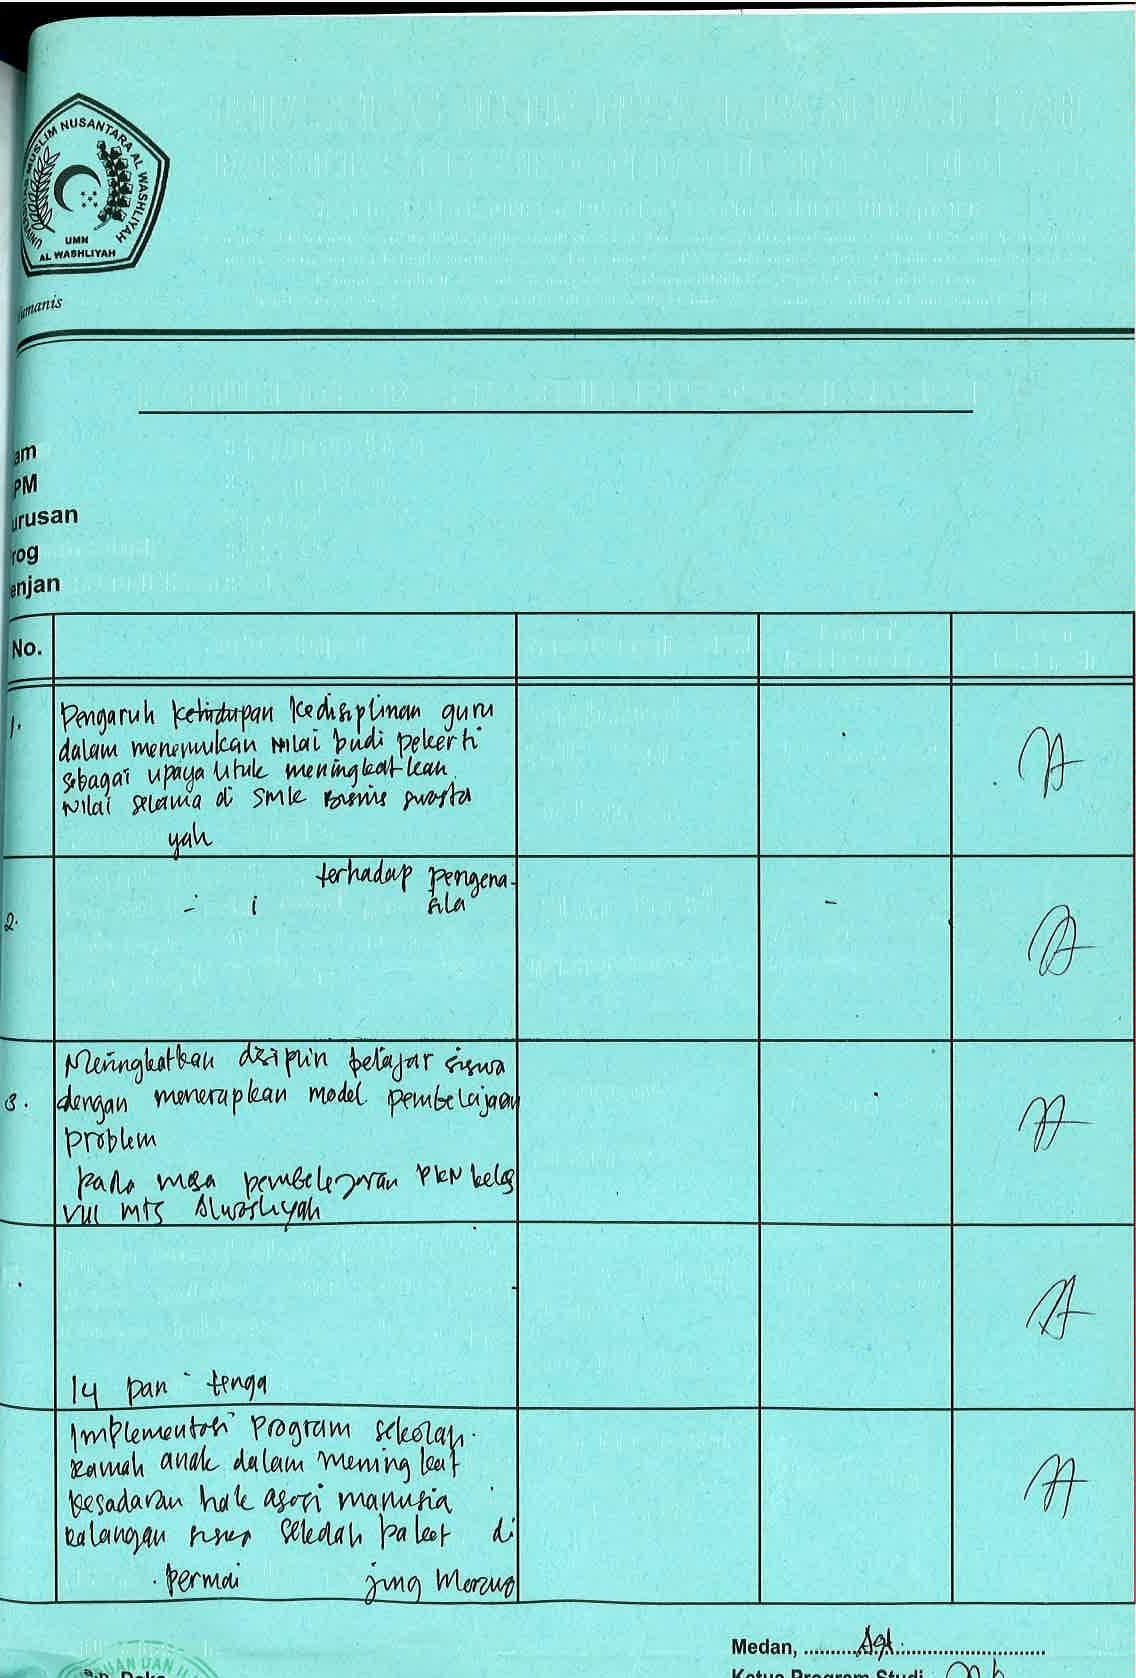 MUSLIM NUSANTARA AL WASHLIYAH
UMN
AL WASHLIYAH
umanis
am
PM
urusan
rog
enjan
No.
1.
Pengaruh kehidupan kedisiplinan guru
dalam menemukan nilai budi pekerti
sebagai upaya Utuk meningkatkan
Nilai selama di SMK Bisnis swasta
yah
2.
terhadap pengena-
i sila
3.
Meningkatkan disiplin belajar siswa
dengan menerapkan model pembelajaan
problem
pada masa pembelejaran PKN kelas
VIII MTS Alwashliyah
14 pan tenga
Implementasi Program sekolah
Ramah anak dalam mening kat
kesadaran hak asasi manusia
kalangan di
permai jung
Medan, ...........................
Ketua Program Studi